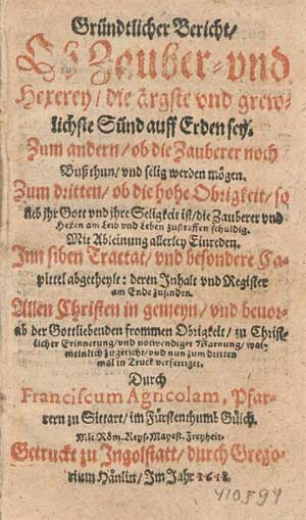 Gründtlicher Bericht/
Ob Zauber- vnd
Hexerey/ die ärgste vnd grew-
lichste Sünd auff Erden sey.
Zum andern/ ob die Zauberer noch
Buß thun/ vnd selig werden mögen.
Zum dritten/ ob die hohe Obrigkeit/ so
lieb ihr Gott vnd ihre Seligkeit ist/ die Zauberer vnd
Hexen am Leib vnd Leben zustraffen schuldig.
Mit Ableinung allerley Einreden.
Inn siben Tractat/ vnd besondere Ca-
pittel abgetheylt: deren Inhalt vnd Register
am Ende zufinden.
Allen Christen in gemeyn/ vnd beuor-
ab der Gottliebenden frommen Obrigkeit/ zu Christ-
licher Erinnerung/ vnd notwendiger Warnung/ wol-
meinlich zugericht/ vnd nun zum dritten
mal in Truck verfertiget.
Durch
Franciscum Agricolam, Pfar-
rern zu Sittart/ im Fürstenthumb Gülch.
Mit Röm. Keys. Mayest. Freyheit.
Getruckt zu Ingolstatt/ durch Grego-
rium Hänlin/ Im Jahr 1618.
410.594